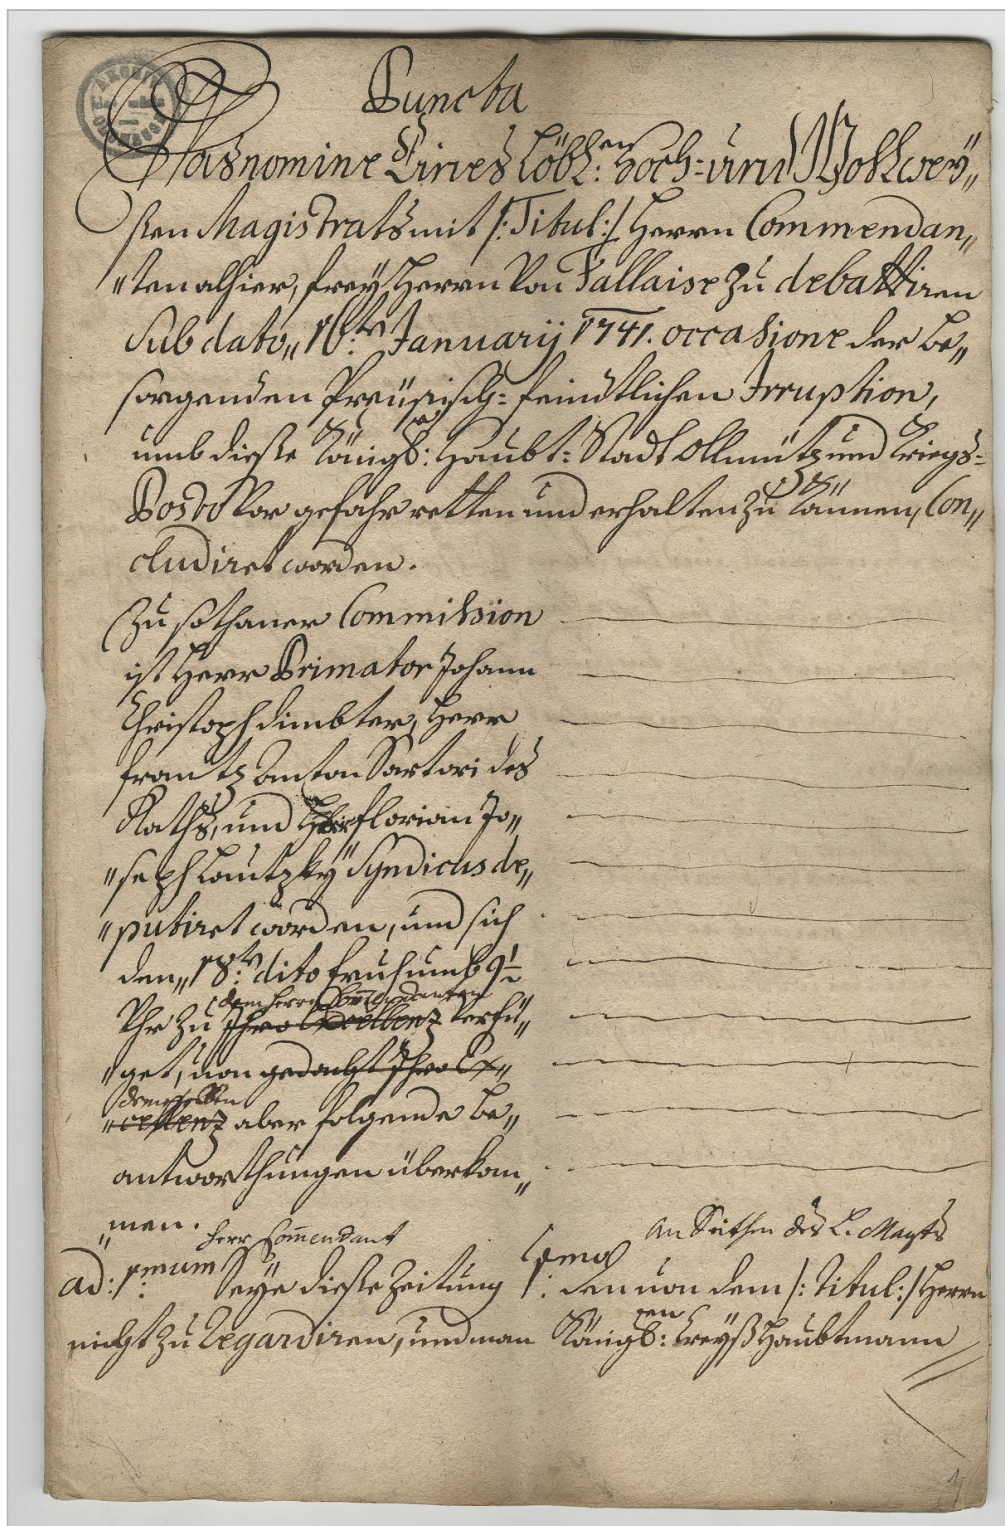 Puncta
Wasnomine Eines Löbl:en Hoch- und Wohlwey„
sten Magistrats mit /:Titul:/ Herrn Commendan„
„ten alhier, freyherrn von Fallaise zu debattiren
sub dato„ 16:ten Januarij 1741. occasione der be„
sorgenden Preüsisch-feindtlichen Irruption,
umb dieße Königl: Haubt-Stadt Ollmütz und Kriegs-
Posto vor gefahr retten und erhalten zu können, Con„
cludiret worden.
Zu sothaner Commission
ist Herr Primator Johann
Christoph Dimbter, Herr
Frantz Anton Sartori des
Raths, und Herr Florian Jo„
„seph Lautzky Syndicus de„
„putiret worden, und sich
den„ 18:ten dito fruh umb 9½
dem Herrn Commendanten
Uhr zu Ihro Excellenz verfü„
„get, von gedacht Ihro Ex„
demselben
„cellenz aber folgende be„
antworthungen überkom„
„men.
Herr Commendant
An Seithen des L. Magts
ad: 1:mum Seye dieße Zeitung
nicht zu regardiren, und man
1:mo den von dem /:Titul:/ Herrn
Königl:en Creyß Haubtmann
1